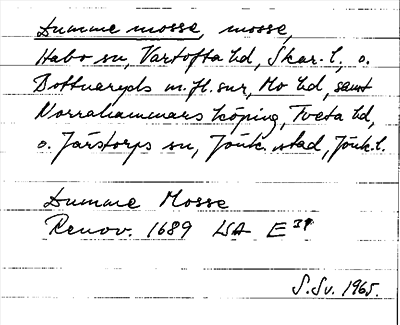 Dumme mosse, mosse,
Habo sn, Vartofta hd, Skar. l. o.
Bottnaryds m. fl. snr, Mo hd, samt
Norrahammars köping, Tveta hd,
o. Järstorps sn, Jönk. stad, Jönk. l.
Dumme Mosse
Renov. 1689 LSA E 39
S. Sv. 1965.